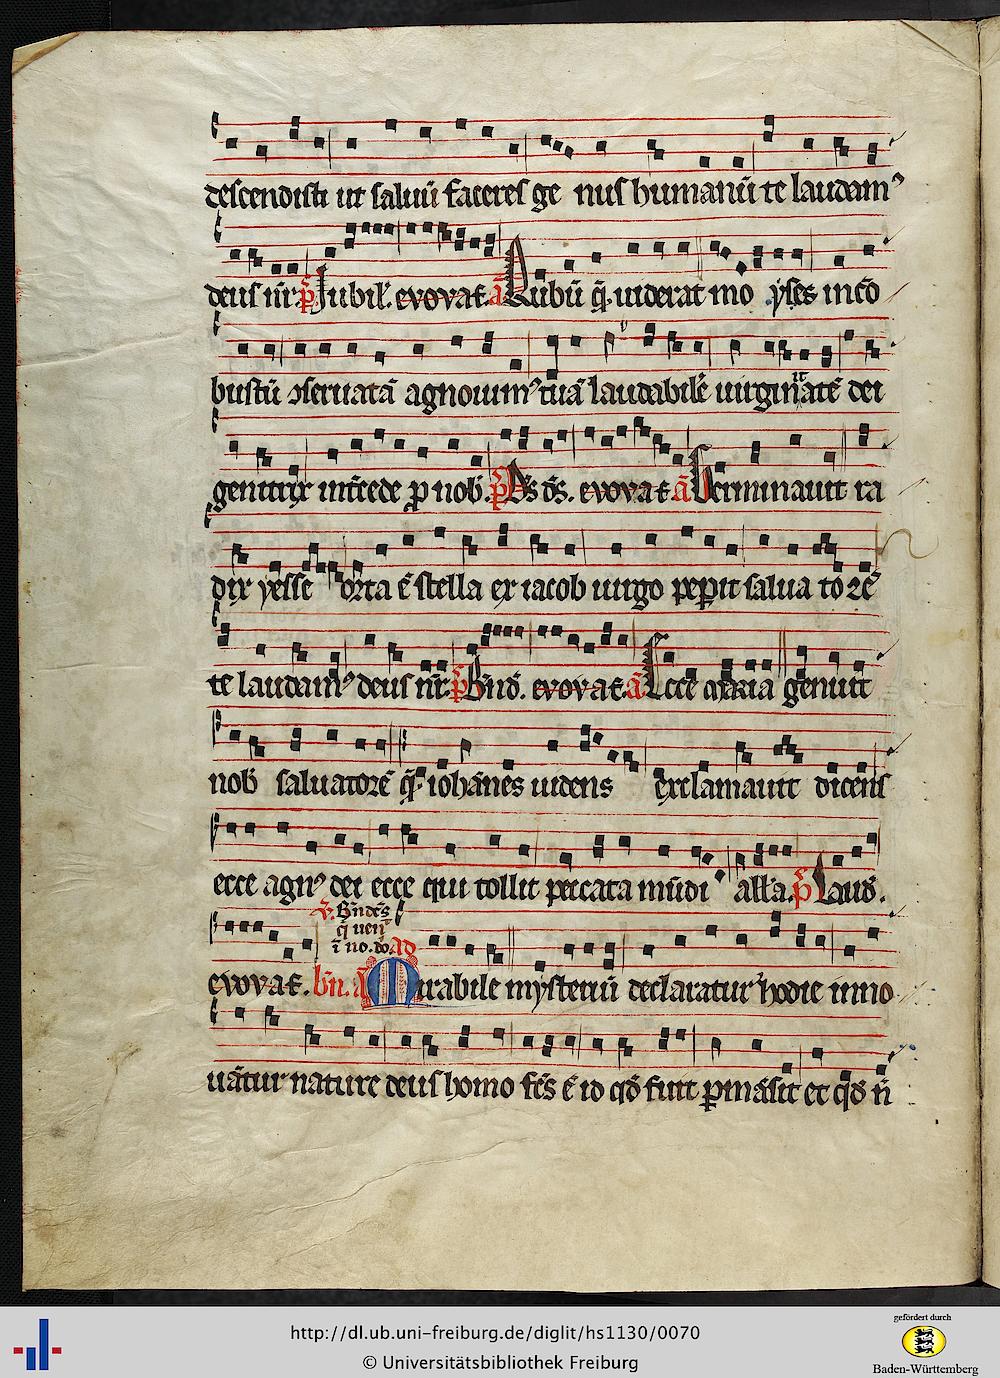 descendisti ut saluū faceres ge nus humanū te laudamꝰ
deus nr̄. p̄ Jubil'. evovae. ā Rubū q̄. uiderat mo yses incō
bustū ↄseruatā agnouimꝰ tuā laudabilē uirginitatē dei
genitrix int̄cede p nob̄. p̄ Ds ds̄. evovae. ā Germinauit ra
dix yesse orta ē stella ex iacob uirgo pepit salua to rē
te laudamꝰ deus nr̄. p̄ Bn̄d. evovae. ā Ecce maria genuit
nob̄ saluatorē q̄. iohānes uidens exclamauit dicens
ecce agnꝰ dei ecce qui tollit peccata mūdi all'a. p̄ Laud.
℣. Bn̄dc̄s
q̄ uen̄
ī no. do. ad
evovae. bn̄. ā Mirabile mysteriū declaratur hodie inno
uātur nature deus homo fc̄s ē id qd̄ fuit pmāsit et qd̄ n̄
http://dl.ub.uni-freiburg.de/diglit/hs1130/0070
© Universitätsbibliothek Freiburg
gefördert durch
Baden-Württemberg